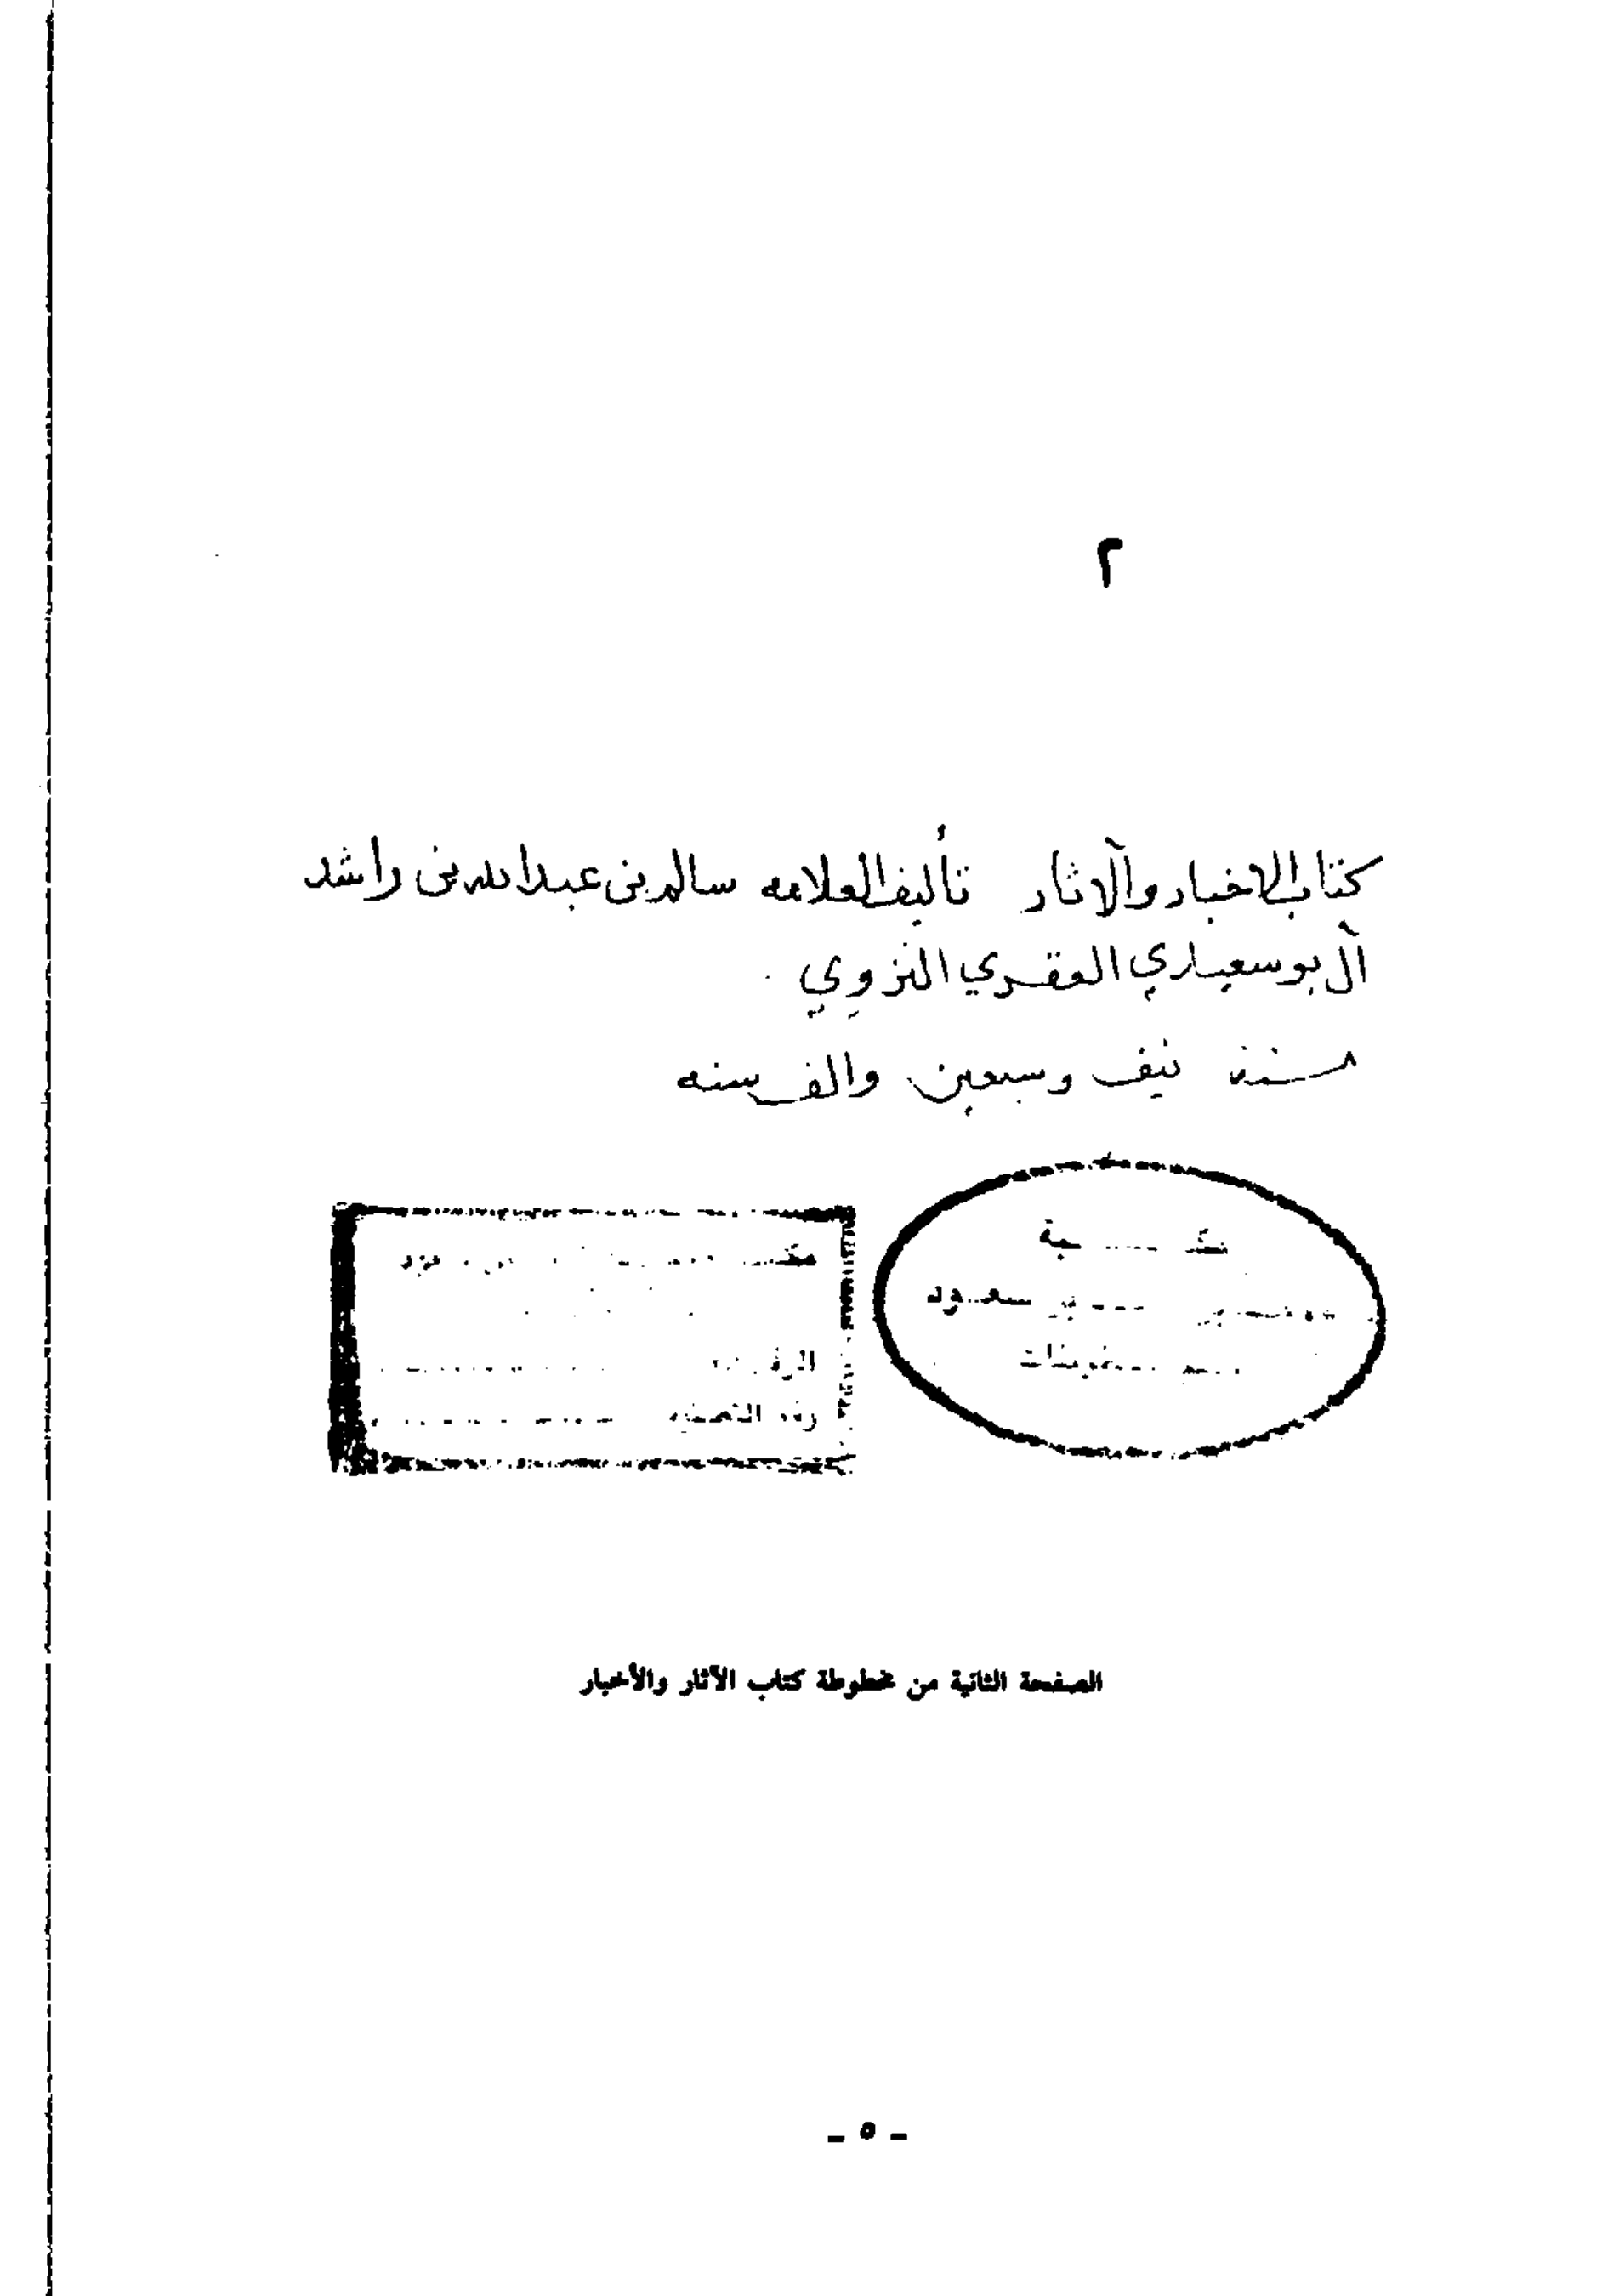 ٢
كتاب الاخبار والآثار تأليف العلامه سالم بن عبدالله بن راشد
آل بوسعيدي العقري النزوي
سنة نيف وسبعين والف سنه
سعود
الصفحة الثانية من مخطوطة كتاب الآثار والأخبار
ـ ٥ ـ